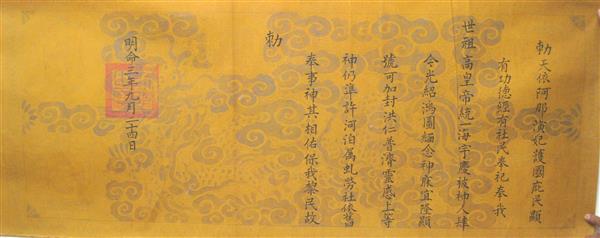 勅天依阿那演妃護國庇民顯
有功德經有社民奉祀奉我
世祖高皇帝統一海宇慶被神人肆
今光紹鴻圖緬念神庥宜隆顯
號可加封洪仁普濟靈感上等
神仍準許河泊属虬勞社依舊
奉事神其相佑保我黎民故
勅
明命三年九月二十四日